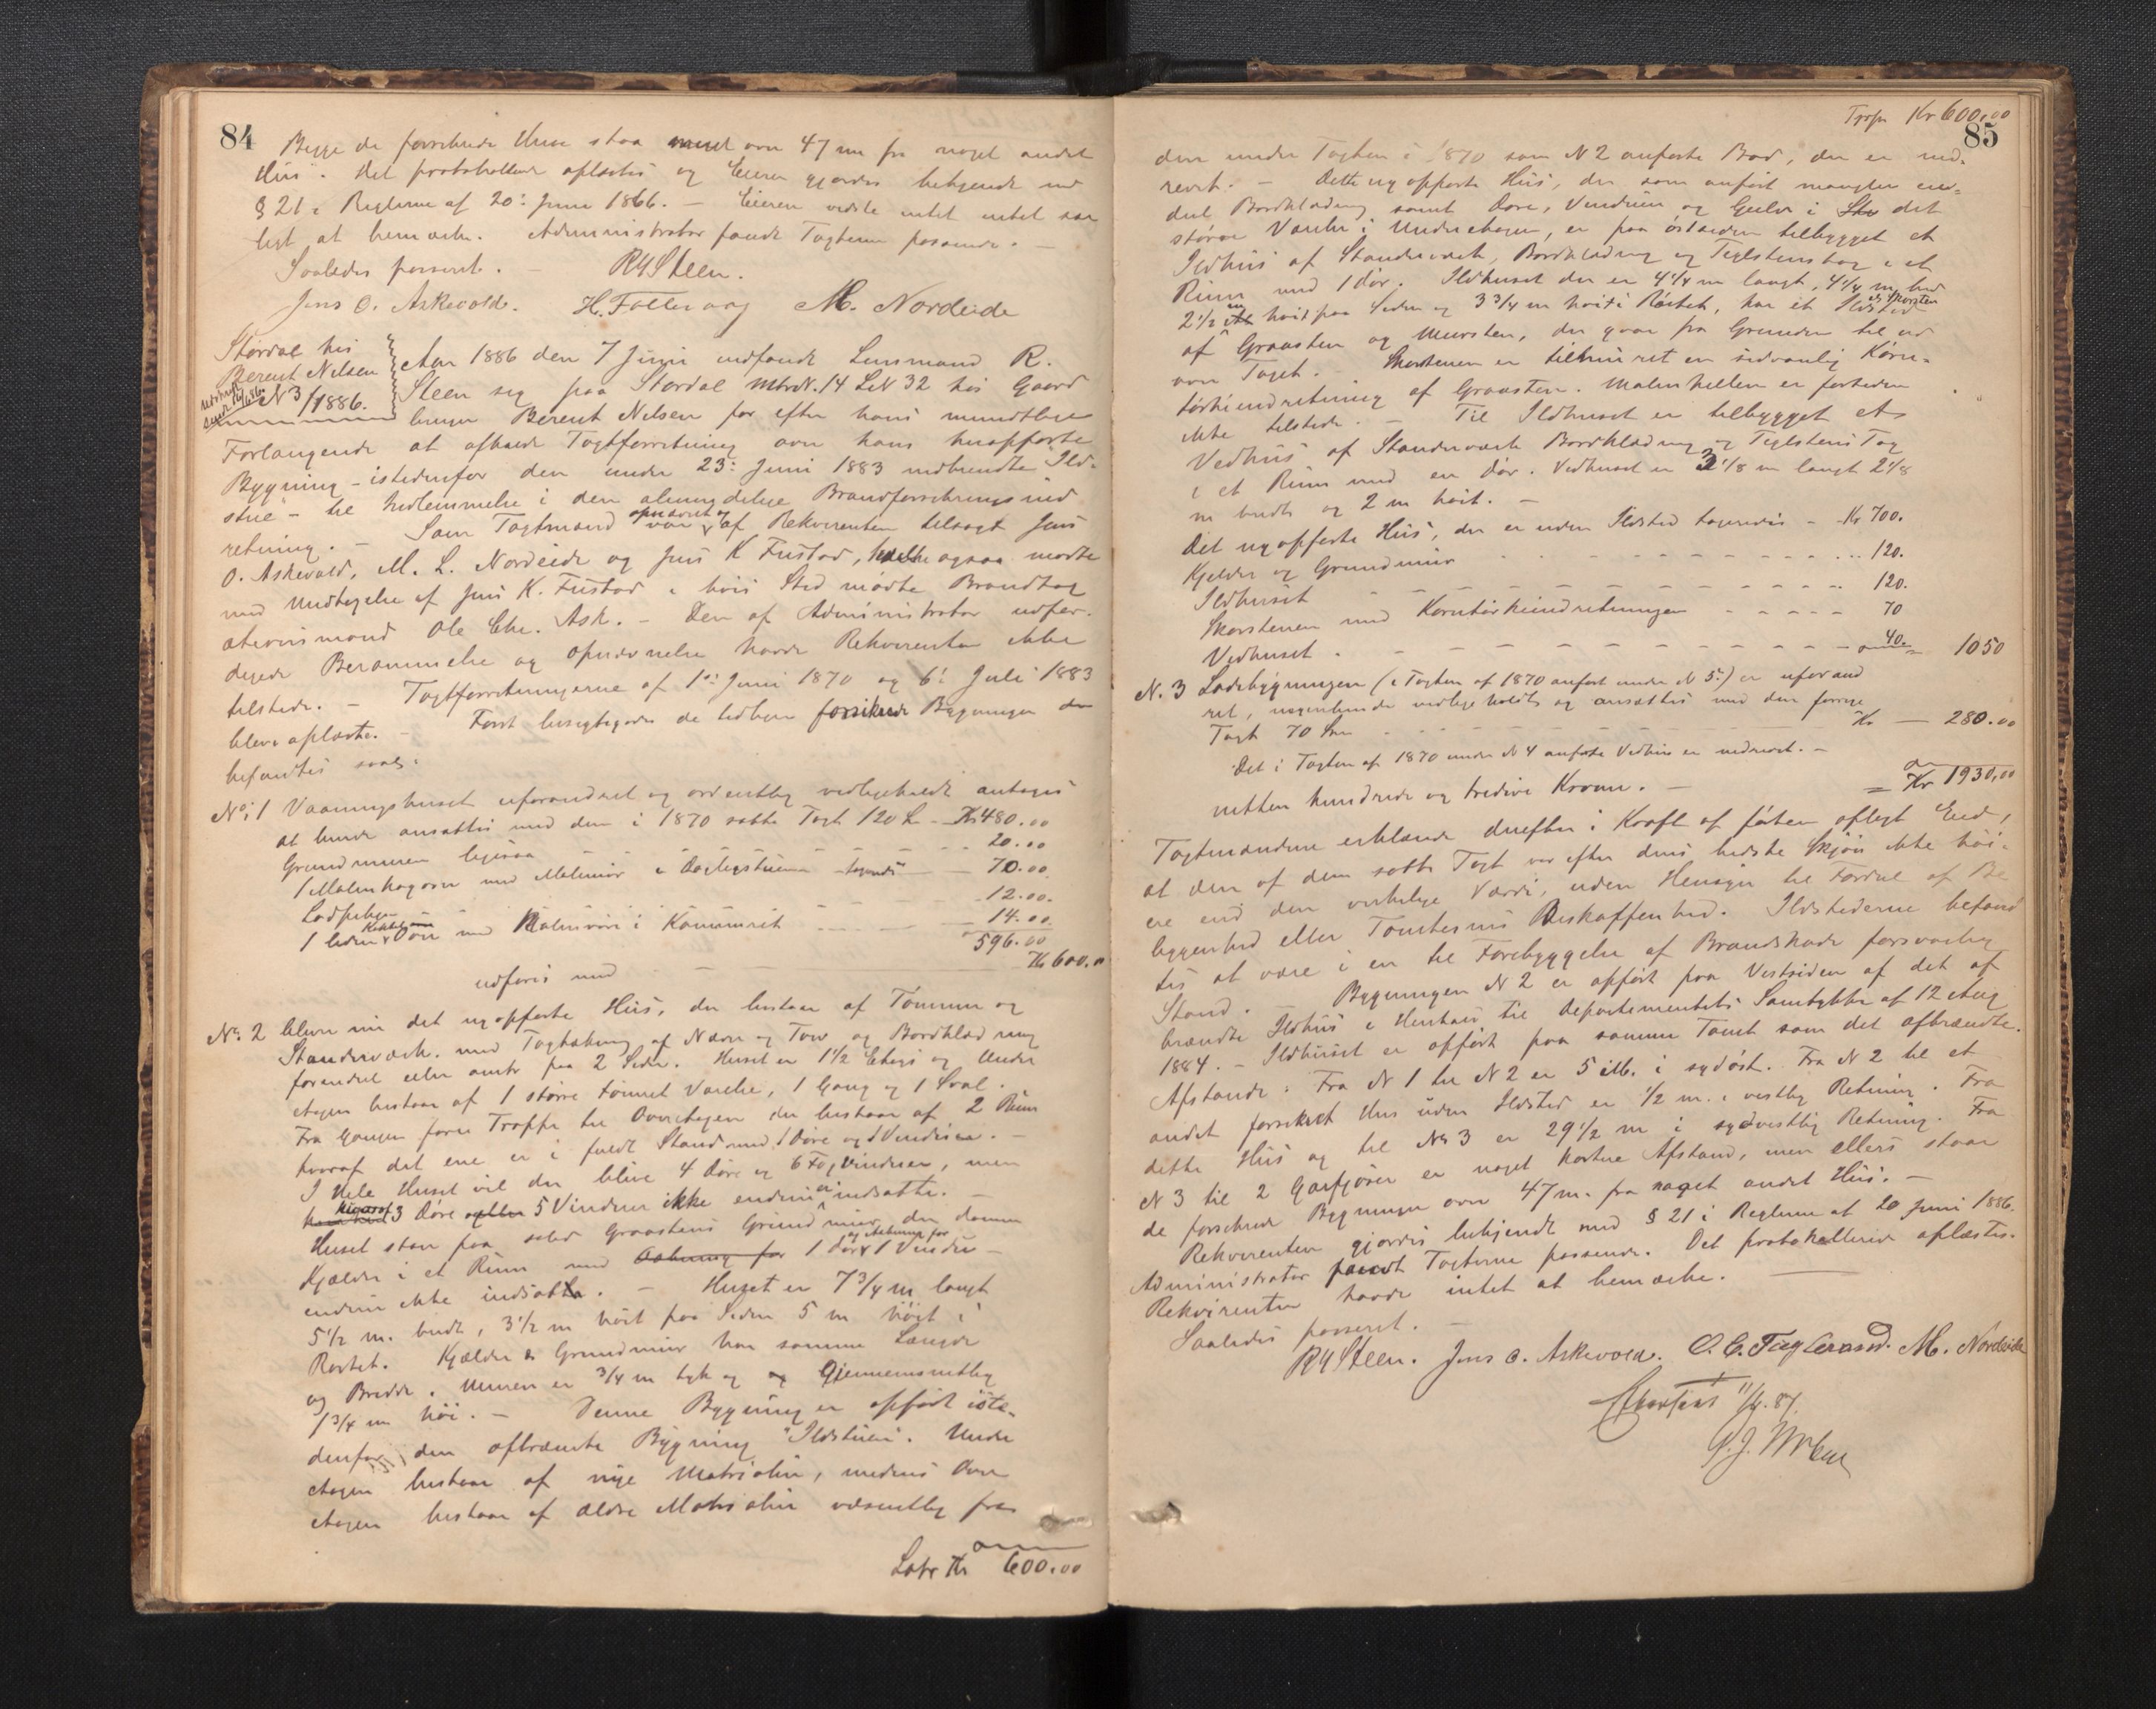 84
Begge de forsikrede Huse staa over 47 m fra noget andet
Huus. Det protokollerede oplæstes og Eieren gjordes bekjendt med
§ 21 i Reglerne af 20: Juni 1866. — Eieren vidste intet
at bemærke. Administrator fandt Taxterne passende. —
Saaledes passeret. — RHSteen.
Jens O. Askevold. H. Folleraag M. Nordeide
Stordal hos
Berent Nelsen
N 3/1886.
Aar 1886 den 7 Juni indfandt Lensmand R.
Steen sig paa Stordal Mtr.N. 14 L.N 32 hos Gaard
bruger Berent Nelsen for efter hans mundtlige
Forlangende at afholde Taxtforretning over hans nyopførte
Bygning – istedenfor den under 23: Juni 1883 nedbrendte Ild-
stue – til Indlemmelse i den almindelige Brandforsikringsind
retning. — Som Taxtmænd var opnævnt og af Rekvirenten tilsagt Jens
O. Askevold, M. L. Nordeide og Jens K Fustad, hvilke ogsaa mødte
med Undtagelse af Jens K. Fustad i hvis Sted mødte Brandtax
ationsmand Ole Chr. Ask. — Den af Administrator udfær-
digede Berammelse og Opnævnelse havde Rekvirenten ikke
tilstede. — Taxtforretningerne af 1ste Juni 1870 og 6: Juli 1883
bleve oplæste. — Først besigtigedes de tidligere forsikrede Bygninger der
befandtes saal:
No: 1 Vaaningshuset uforandret og ordentlig vedligeholdt antages
at kunde ansættes med den i 1870 satte Taxt 120 L — Kr 480.00
Grundmuren ligesaa — — — 20.00
1 Malmkagovn med Malmrør i Dagligstuen taxeredes — 70.00
Ladpipen — 12.00.
1 liden Kakkelovn med Malmrør i Kammeret — — 14.00
596.00
udføres med — — — Kr 600.00
No: 2 bliver nu det nyopførte Huus, der bestaar af Tømmer og
Standerværk med Tagtækning af Næver og Torv og Bordklædning
foruden paa 2 Sider. Huset er 1½ Etages og Under
etagen bestaar af 1 større tømret Værelse, 1 Gang og 1 Sval.
Fra Gangen fører Trappe til Overetagen der bestaar af 2 Rum
hvoraf det ene er i fuldt Stand med 1 Dør og 1 Vindue. —
I Hele Huset vil der blive 4 Døre og 6 Fag Vinduer, men
hvoraf 3 Døre og 5 Vinduer ikke endnu er indsatte. —
Huset staar paa solid Graastens Grundmuur der danner
Kjælder i et Rum med Aabning for 1 Dør og Aabning for 1 Vindu –
endnu ikke indsatte. — Huset er 7¾ m langt
5½ m. bredt, 3½ m høit paa Siden 5 m høit i
Røstet. Kjælder & Grundmuur har samme Længde
og Bredde. Muren er ¾ m tyk og gjennemsnitlig
1¾ m høi. — Denne Bygning er opført iste-
denfor den afbrændte Bygning "Ildstuen". Under
etagen bestaar af nye Materialier, medens Over
etagen bestaar af ældre Materialier væsentlig fra
Latr Kr 600.00
Trsp Kr 600.00
85
den under Taxten i 1870 som N 2 anførte Bod, der er ned-
revet. — Dette nyopførte Huus, der som anført mangler en-
del Bordklædning samt Døre, Vinduer og Gulv i det
større Værelse i Underetagen, er paa østsiden tilbygget et
Ildhuus af Standerværk, Bordklædning og Teglstenstag i et
Rum med 1 dør. Ildhuset der er 4¼ m langt, 4¼ m bred
2½ m høit paa Siden og 3¾ m høit i Røstet, har et Ildsted og Skorsten
af Graasten og Mursten, der gaar fra Grunden til ud
over Taget. — Skorstenen er tilmuret en sedvanlig Korn-
tørkeindretning af Graasten. Malmhellen er fortiden
ikke tilstede. — Til Ildhuset er tilbygget et
Vedhuus af Standerværk Bordklædning og Teglstens Tag
i et Rum med en Dør. Vedhuset er 3⅛ m langt 2⅛
m bredt og 2 m høit. —
Det nyopførte Huus, der er uden Ildsted taxeredes – Kr 700.
Kjelder og Grundmuur — — — 120.
Ildhuset — — — 120.
Skorstenen med Korntørkeindretningen — — — 70
Vedhuset — — — 40. 1050
N. 3 Ladebygningen (i Taxten af 1870 anført under N 5:) er uforand
ret, nogenlunde vedligeholdt og ansættes med den forrige
Taxt 70 Spd — — — Kr — 280.00
Det i Taxten af 1870 under N 4 anførte Vedhuus er nedrevet. —
= Kr 1930,00
nitten hundrede og tredive Kroner. —
Taxtmændene erklærede derefter i Kraft af før aflagt Eed,
at den af dem satte Taxt var efter deres bedste Skjøn ikke høi-
ere end den virkelige Værdi, uden Hensyn til Fordel af Be
liggenhed eller Tomtens Beskaffenhed. Ildstederne befand
tes at være i en til Forebyggelse af Brandskade forsvarlig
Stand. — Bygningen N 2 er opført paa Vestsiden af det af
brændte Ildhuus i Henhold til Departementets Samtykke af 12 Aug
1884. — Ildhuset er opført paa samme Tomt som det afbrændte.
Afstande: Fra N 1 til N 2 er 5 m. i sydøst. Fra N 2 til et
andet forsikret Hus uden Ildsted er ½ m. i vestlig Retning. Fra
dette Huus og til No 3 er 29½ m i sydvestlig Retning. Fra
N 3 til 2 er noget kortere Afstand, men ellers staar
de forsikrede Bygninger over 47 m. fra noget andet Huus. —
Rekvirenten gjordes bekjendt med § 21 i Reglerne af 20 Juni 1886.
Administrator fandt Taxterne passende. Det protokollerede oplæstes.
Rekvirenten havde intet at bemærke. —
Saaledes passeret. —
RHSteen. Jens O. Askevold. M. Nordeide
11/4. 87.